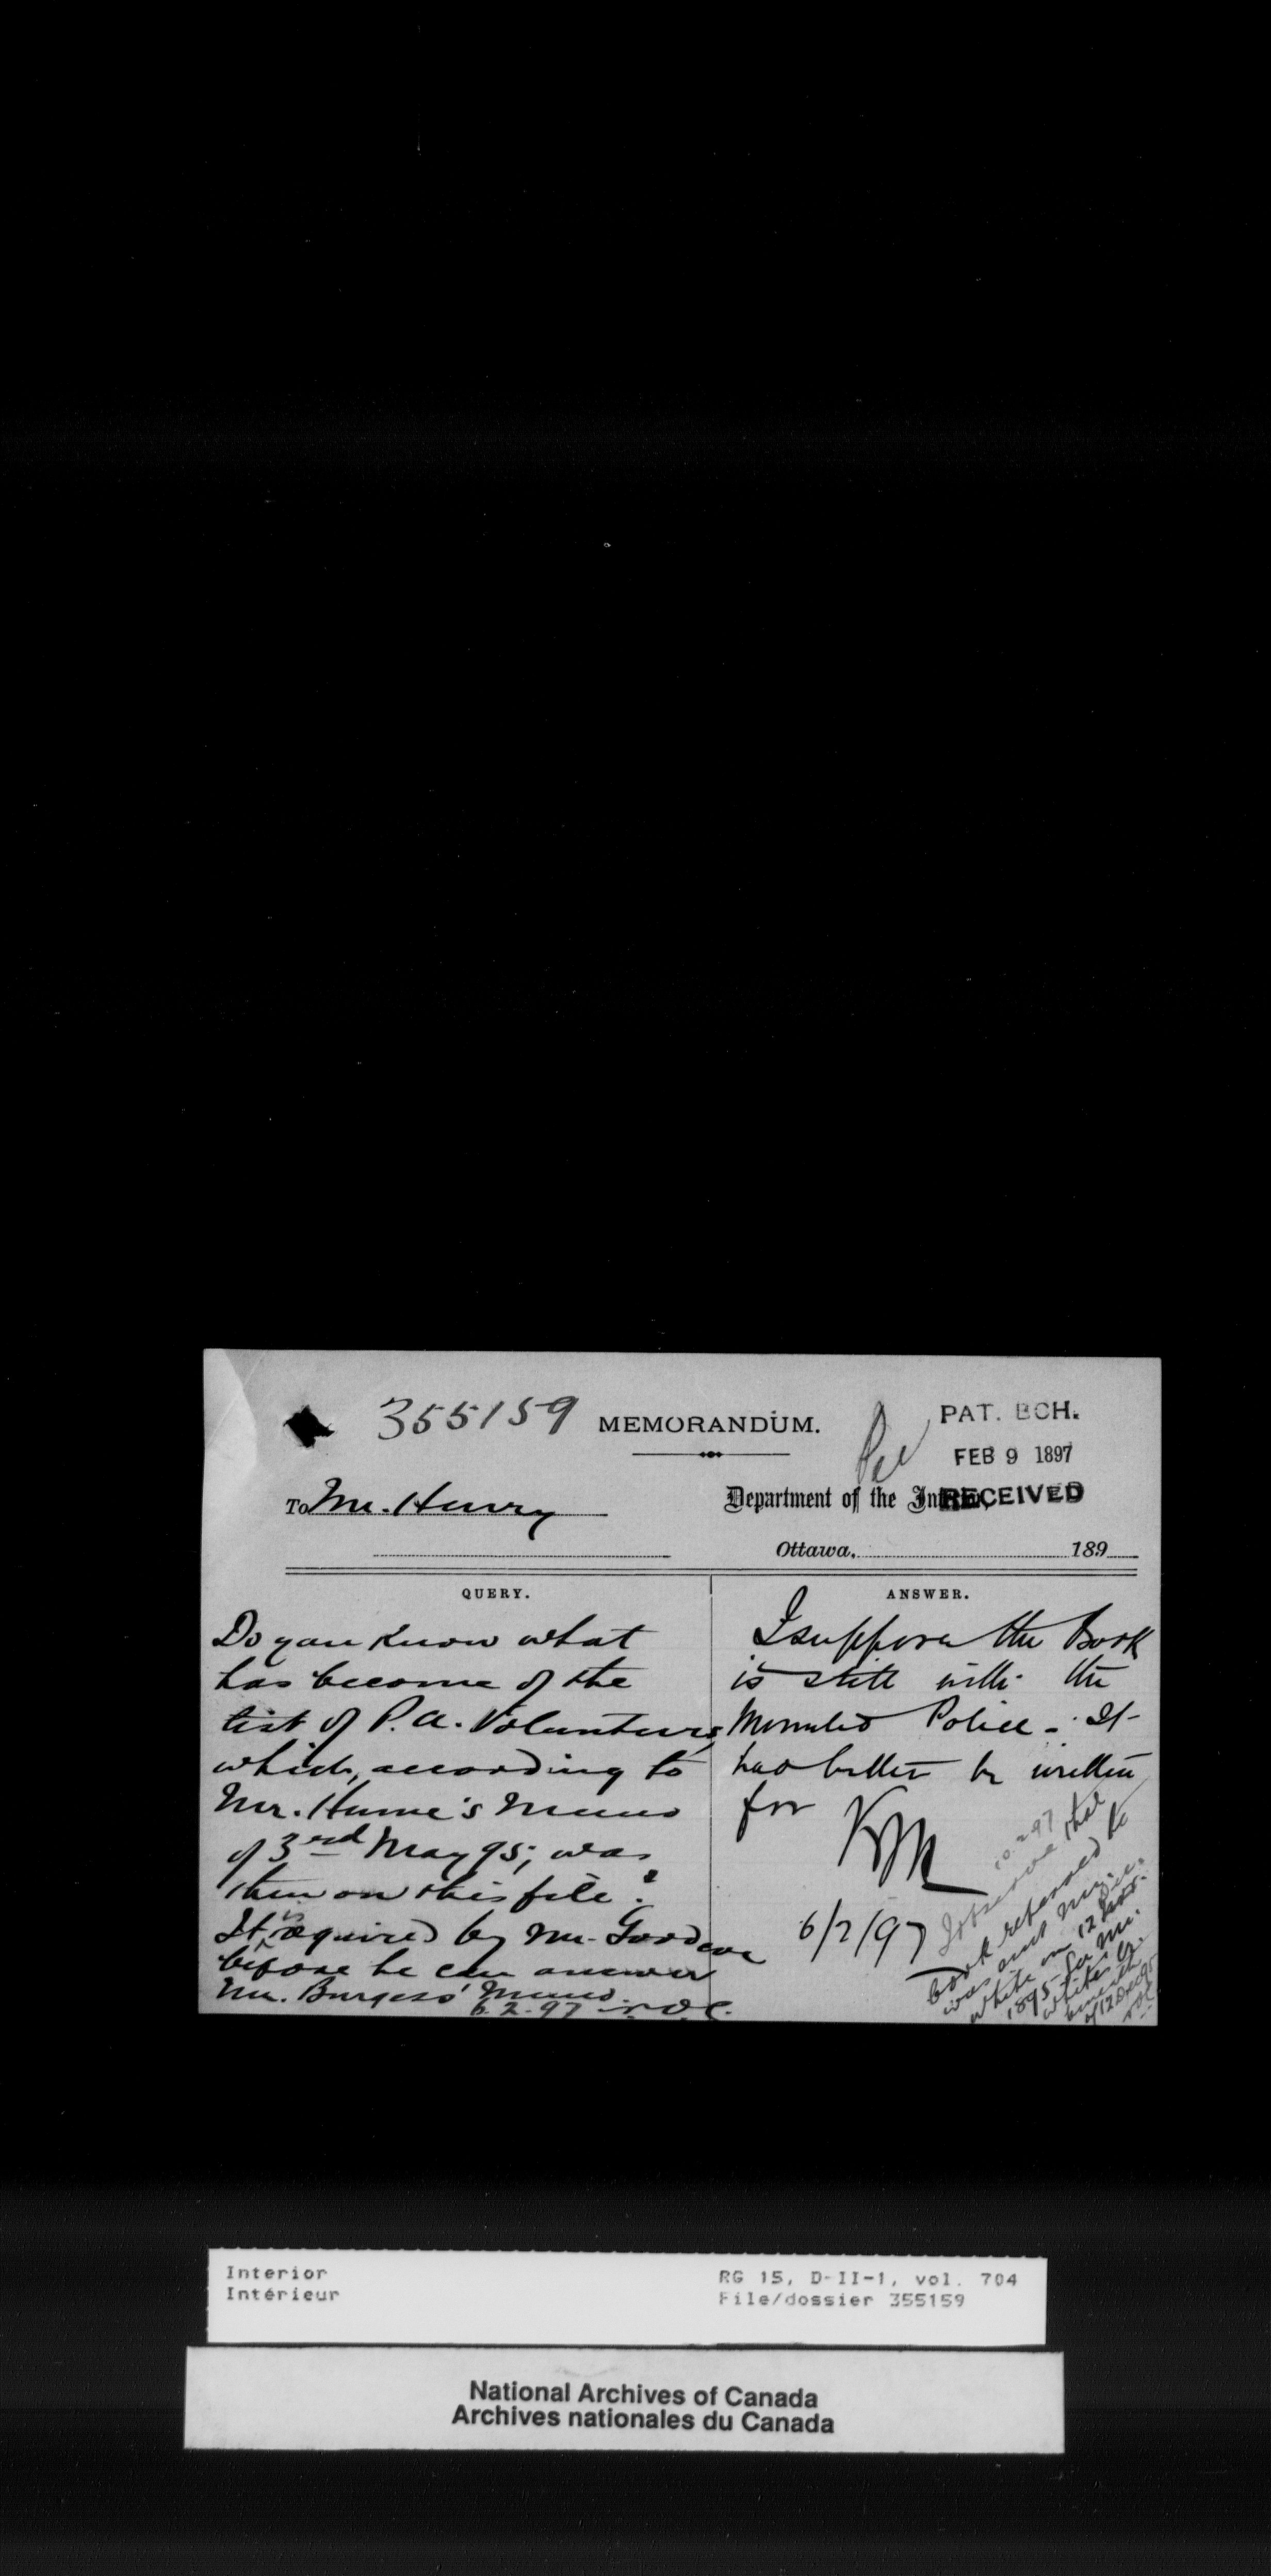 355159 MEMORANDUM.
PAT. BCH.
FEB 9 1897
RECEIVED
To Mr. Henry
Department of the Interior
Ottawa, 189
QUERY.
Do you know what
has become of the
list of P.A. Volunteers
which, according to
Mr. Hume's Memo
of 3rd May 95, was
then on this file?
It is required by Mr. Goodeve
before he can answer
Mr. Burgess' Memo.
6.2.97
ANSWER.
I suppose the Book
is still with the
Mounted Police - It
had better be written
for
6/2/97
10.2.97
I observe that
book referred to
was sent
White on 12
1895
White's
of 12
Interior
Intérieur
RG 15, D-II-1, vol. 704
File/dossier 355159
National Archives of Canada
Archives nationales du Canada